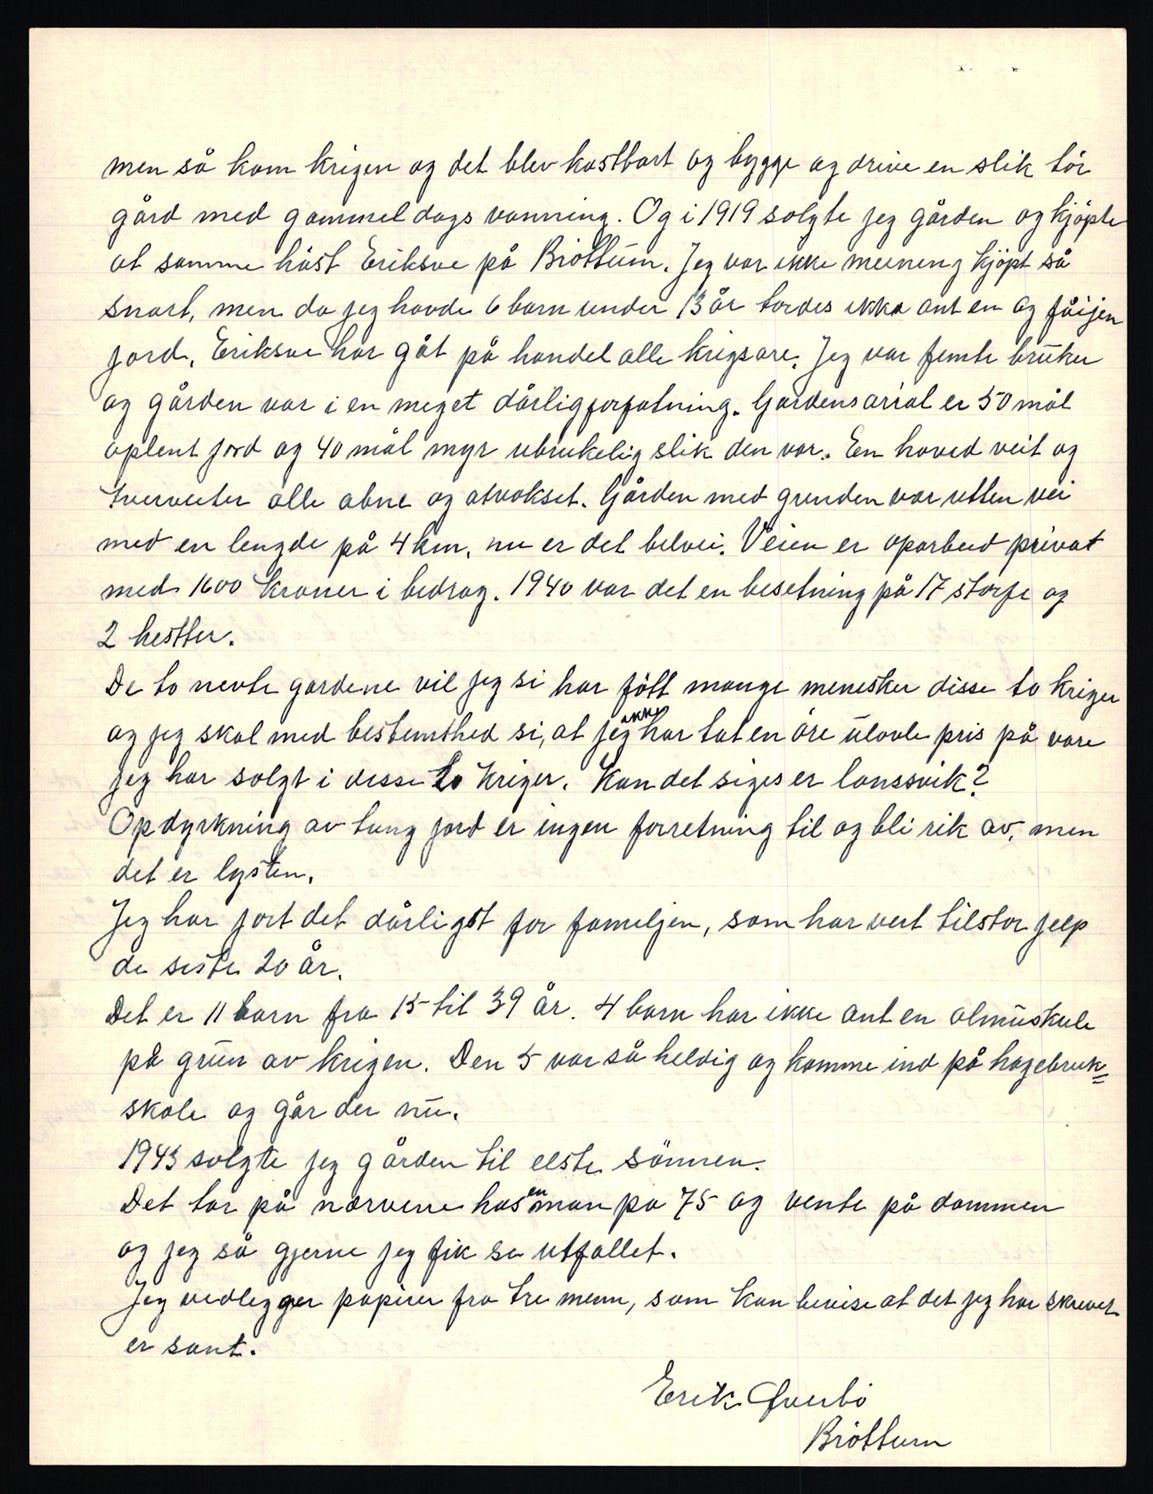 men så kom krigen og det blev kostbart og bygge og drive en slik tör
gård med gammeldags vanning. Og i 1919 solgte jeg gården og kjöpte
at samme håst Eriksve på Bröttum. Jeg var ikke meening kjöpt så
snart, men da jeg havde 6 barn under 13 år tordes ikke ant en og få ijen
jord. Eriksve har gåt på handel alle krigsare. Jeg var femte bruker
og gården var i en meget dårlig forfatning. Gardens arial er 50 mål
oplent jord og 40 mål myr ubrukelig slik den var. En hoved veit og
tverveiter alle abne og atvokset. Gården med grenden var utten vei
med en lengde på 4 km, nu er det bilvei. Veien er oparbeid privat
med 1600 kroner i bedrag. 1940 var det en besetning på 17 storfe og
2 hestter.
De to nevte gardene vil jeg si har födt mange menesker disse to kriger
og jeg skal med bestemthed si, at jeg ikke har tat en öre ulovle pris på vare
jeg har solgt i disse to kriger. Kan det siges er lanssvik?
Opdyrkning av tung jord er ingen forretning til og bli rik av, men
det er lysten.
Jeg har jort det dårligst for familjen, som har vert til stor jelp
de siste 20 år.
Det er 11 barn fra 15 til 39 år. 4 barn har ikke ant en almuskule
på grun av krigen. Den 5 var så heldig og komme ind på hagebruk=
skole og går der nu.
1943 solgte jeg gården til elste sönnen.
Det tar på nærvene hos en man pa 75 og vente på dommen
og jeg så gjerne jeg fik se utfallet.
Jeg vedlegger papirer fra tre menn, som kan bevise at det jeg har skrevet
er sant.
Erik Qverbö
Bröttum